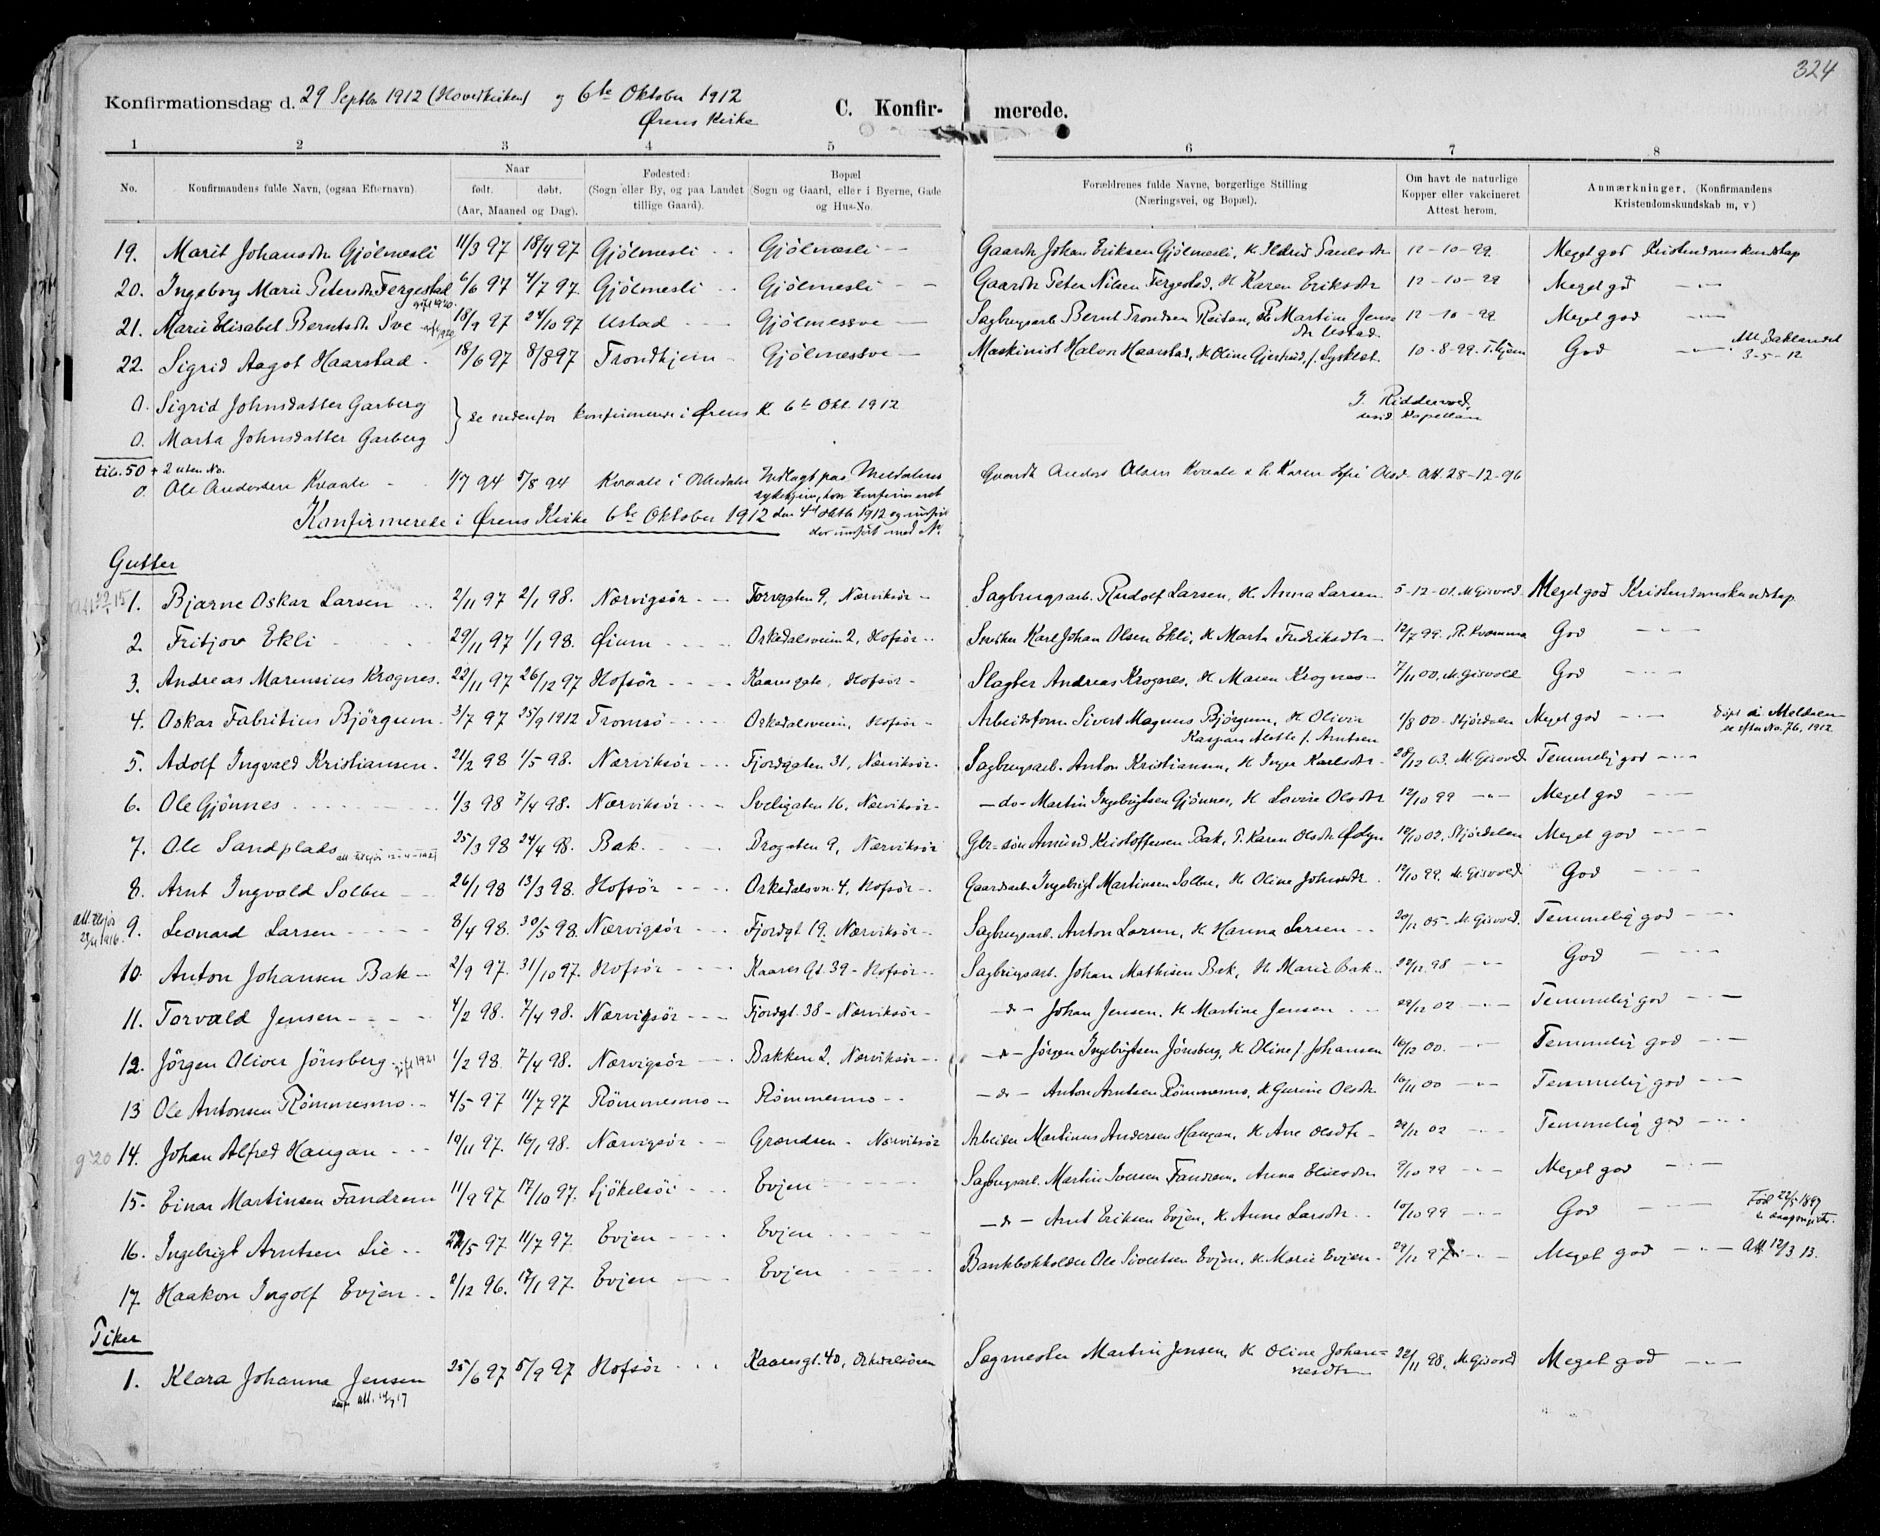 324
Konfirmationsdag d. 29 Septbr 1912 (Hovedkirken) og 6te Oktober 1912
Ørens Kirke
C. Konfirmerede.
1 2 3 4 5 6 7 8
No. Konfirmandens fulde Navn, (ogsaa Efternavn) Naar født. døbt. (Aar, Maaned og Dag). Fødested: (Sogn eller By, og paa Landet tillige Gaard). Bopæl (Sogn og Gaard, eller i Byerne, Gade og Hus-No. Forældrenes fulde Navne, borgerlige Stilling (Næringsvei, og Bopæl). Om havt de naturlige Kopper eller vakcineret Attest herom. Anmærkninger. (Konfirmandens Kristendomskundskab m, v)
19. Marit Johansdtr Gjölmesli 11/3 97 18/4 97 Gjölmesli Gjölmesli Gaardbr Johan Eriksen Gjölmesli, H. Ildrid Paulsdtr 12-10-99. Meget god Kristendomskundskap
20. Ingeborg Marie Petersdtr Fergestad gift 1920. 6/6 97 4/7 97 Gjölmesli Gjölmesli Gaardbr Peter Nilsen Fergestad, H Karen Eriksdtr 12-10-99 Meget god
21. Marie Elisabet Berntsdtr Sve 18/9 97 24/10 97 Ustad Gjölmessve Sagbrugsarb. Bernt Trondsen Reitan, Martine Jensdtr Ustad 12-10-99. Meget god
22. Sigrid Aagot Haarstad 18/6 97 8/8 97 Trondhjem Gjölmessve Maskinist Halvor Haarstad, H. Oline Gjertrud f. Sysklet 10-8-99. T.hjem God Att. Baklandet 3-5-12
0. Sigrid Johnsdatter Garberg
0. Marta Johnsdatter Garberg
} se nedenfor konfirmerede i Ørens K 6te Okt. 1912
J. Riddervold, resid. Kapellan
tils. 50 + 2 uten No.
0. Ole Andersen Kvaale 1/7 94 5/8 94 Kvaale i Orkedalen Indlagt paa Meldalens sykehjem, Gaardbr Anders Olsen Kvaale & H. Karen Sofie Olsd. Att. 28-12-96
Konfirmerede i Ørens Kirke 6te Oktober 1912
Gutter
1. Bjarne Oskar Larsen 2/11 97 2/1 98. Nærvigsör Torvgaten 9, Nærviksör Sagbrugsarb. Rudolf Larsen, H. Anna Larsen 5-12-01. M. Gisvold Meget god Kristendomskundskap
2. Fritjov Ekli 29/11 97 1/1 98. Øium Orkedalsveien 2, Hofsör Snekker Karl Johan Olsen Ekli, H Marta Fredriksdtr 12/7 99. R. Kvamma God
3. Andreas Marensius Krognes. 22/11 97 26/12 97 Hofsör Kaaresgate, Hofsör Slagter Andreas Krognes. H. Maren Krognes 7/11 00. M. Gisvold God
4. Oskar Fabritius Björgum 3/7 97 25/9 1912 Tromsö Orkedalsveien, Hofsör Arbeidsform. Sivert Magnus Björgum, H. Olivia Kaspara Metle f. Arntsen 1/8 00. Stjördalen Meget god Döpt i Meldalen se efter No. 76, 1912
5. Adolf Ingvald Kristiansen. 21/2 98 1/5 98. Nærviksör Fjordgaten 31, Nærviksör Sagbrugsarb. Anton Kristiansen, H Inger Karlsdtr 28/12 03. M. Gisvold Temmelig god
6. Ole Gjönnes 1/3 98 7/4 98. Nærviksör Sveligaten 16, Nærviksör -do- Martin Ingebrigtsen Gjönnes, H Lovise Olsdtr 12/10 99 Meget god
7. Ole Sandplads 25/3 98 24/4 98. Bak. Brogaten 9, Nærviksör Gbr-sön Amund Kristoffersen Bak, P. Karen Olsdtr Ødlyn 12/10 02, Stjördalen Meget god
8. Arnt Ingvald Solbu 26/1 98 13/3 98. Hofsör Orkedalsvn. 4, Hofsör Gaardarb. Ingebrigt Martinsen Solbu, H. Oline Johnsdtr 12/10 99. M. Gisvold God
9. Leonard Larsen 8/4 98. 30/5 98. Nærvigsör Fjordgt 19, Nærviksör Sagbrugsarb. Anton Larsen, H. Hanna Larsen 20/12 05 - M. Gisvold. Temmelig god
10. Anton Johansen Bak 2/9 97. 31/10 97. Hofsör Kaares Gt. 39 - Hofsör Sagbrugsarb. Johan Mathisen Bak, H. Marie Bak 22/12 98 God
11. Torvald Jensen 4/2 98. 7/4 98. Nærvigsör Fjordgt. 38 - Nærviksör -do- Johan Jensen, H. Martine Jensen 29/12 02 Temmelig god
12. Jörgen Oliver Jönsberg gift 1921 1/2 98. 7/4 98. Nærvigsör Bakken 2, Nærviksör -do- Jörgen Ingebrigtsen Jönsberg, H. Oline f. Johansen 16/12 00. Temmelig god
13 Ole Antonsen Römmesmo 4/5 97 11/7 97 Römmesmo Römmesmo -do- Anton Arntsen Römmesmo, H Gurine Olsdtr 16/11 00 Temmelig god
14. Johan Alfred Haugan 19/11 97. 16/1 98. Nærvigsör Grændsen - Nærviksör Arbeider Martinus Andersen Haugan, H. Ane Olsdtr 29/12 02 Temmelig god
15. Einar Martinsen Fandrem 11/9 97 17/10 97. Sjökelsöi Evjen Sagbrugsarb. Martin Iversen Fandrem, Anna Eliesdtr 9/10 99 Meget god
16. Ingebrigt Arntsen Lie 22/5 97 11/7 97. Evjen Evjen -do- Arnt Eriksen Evjen, H. Anne Larsdtr 10/10 99 God Född 22/5 1897
17. Haakon Ingolf Evjen 2/12 96. 17/1 97. Evjen Evjen Bankbokholder Ole Sivertsen Evjen, H. Marie Evjen 29/11 97 Meget god Att. 12/3 13.
Piker
1. Klara Johanna Jensen 25/6 97 5/9 97 Hofsör Kaaresgt. 40, Orkedalsören Sagmester Martin Jensen, H. Oline Johannesdtr 22/11 98, M. Gisvold Meget god